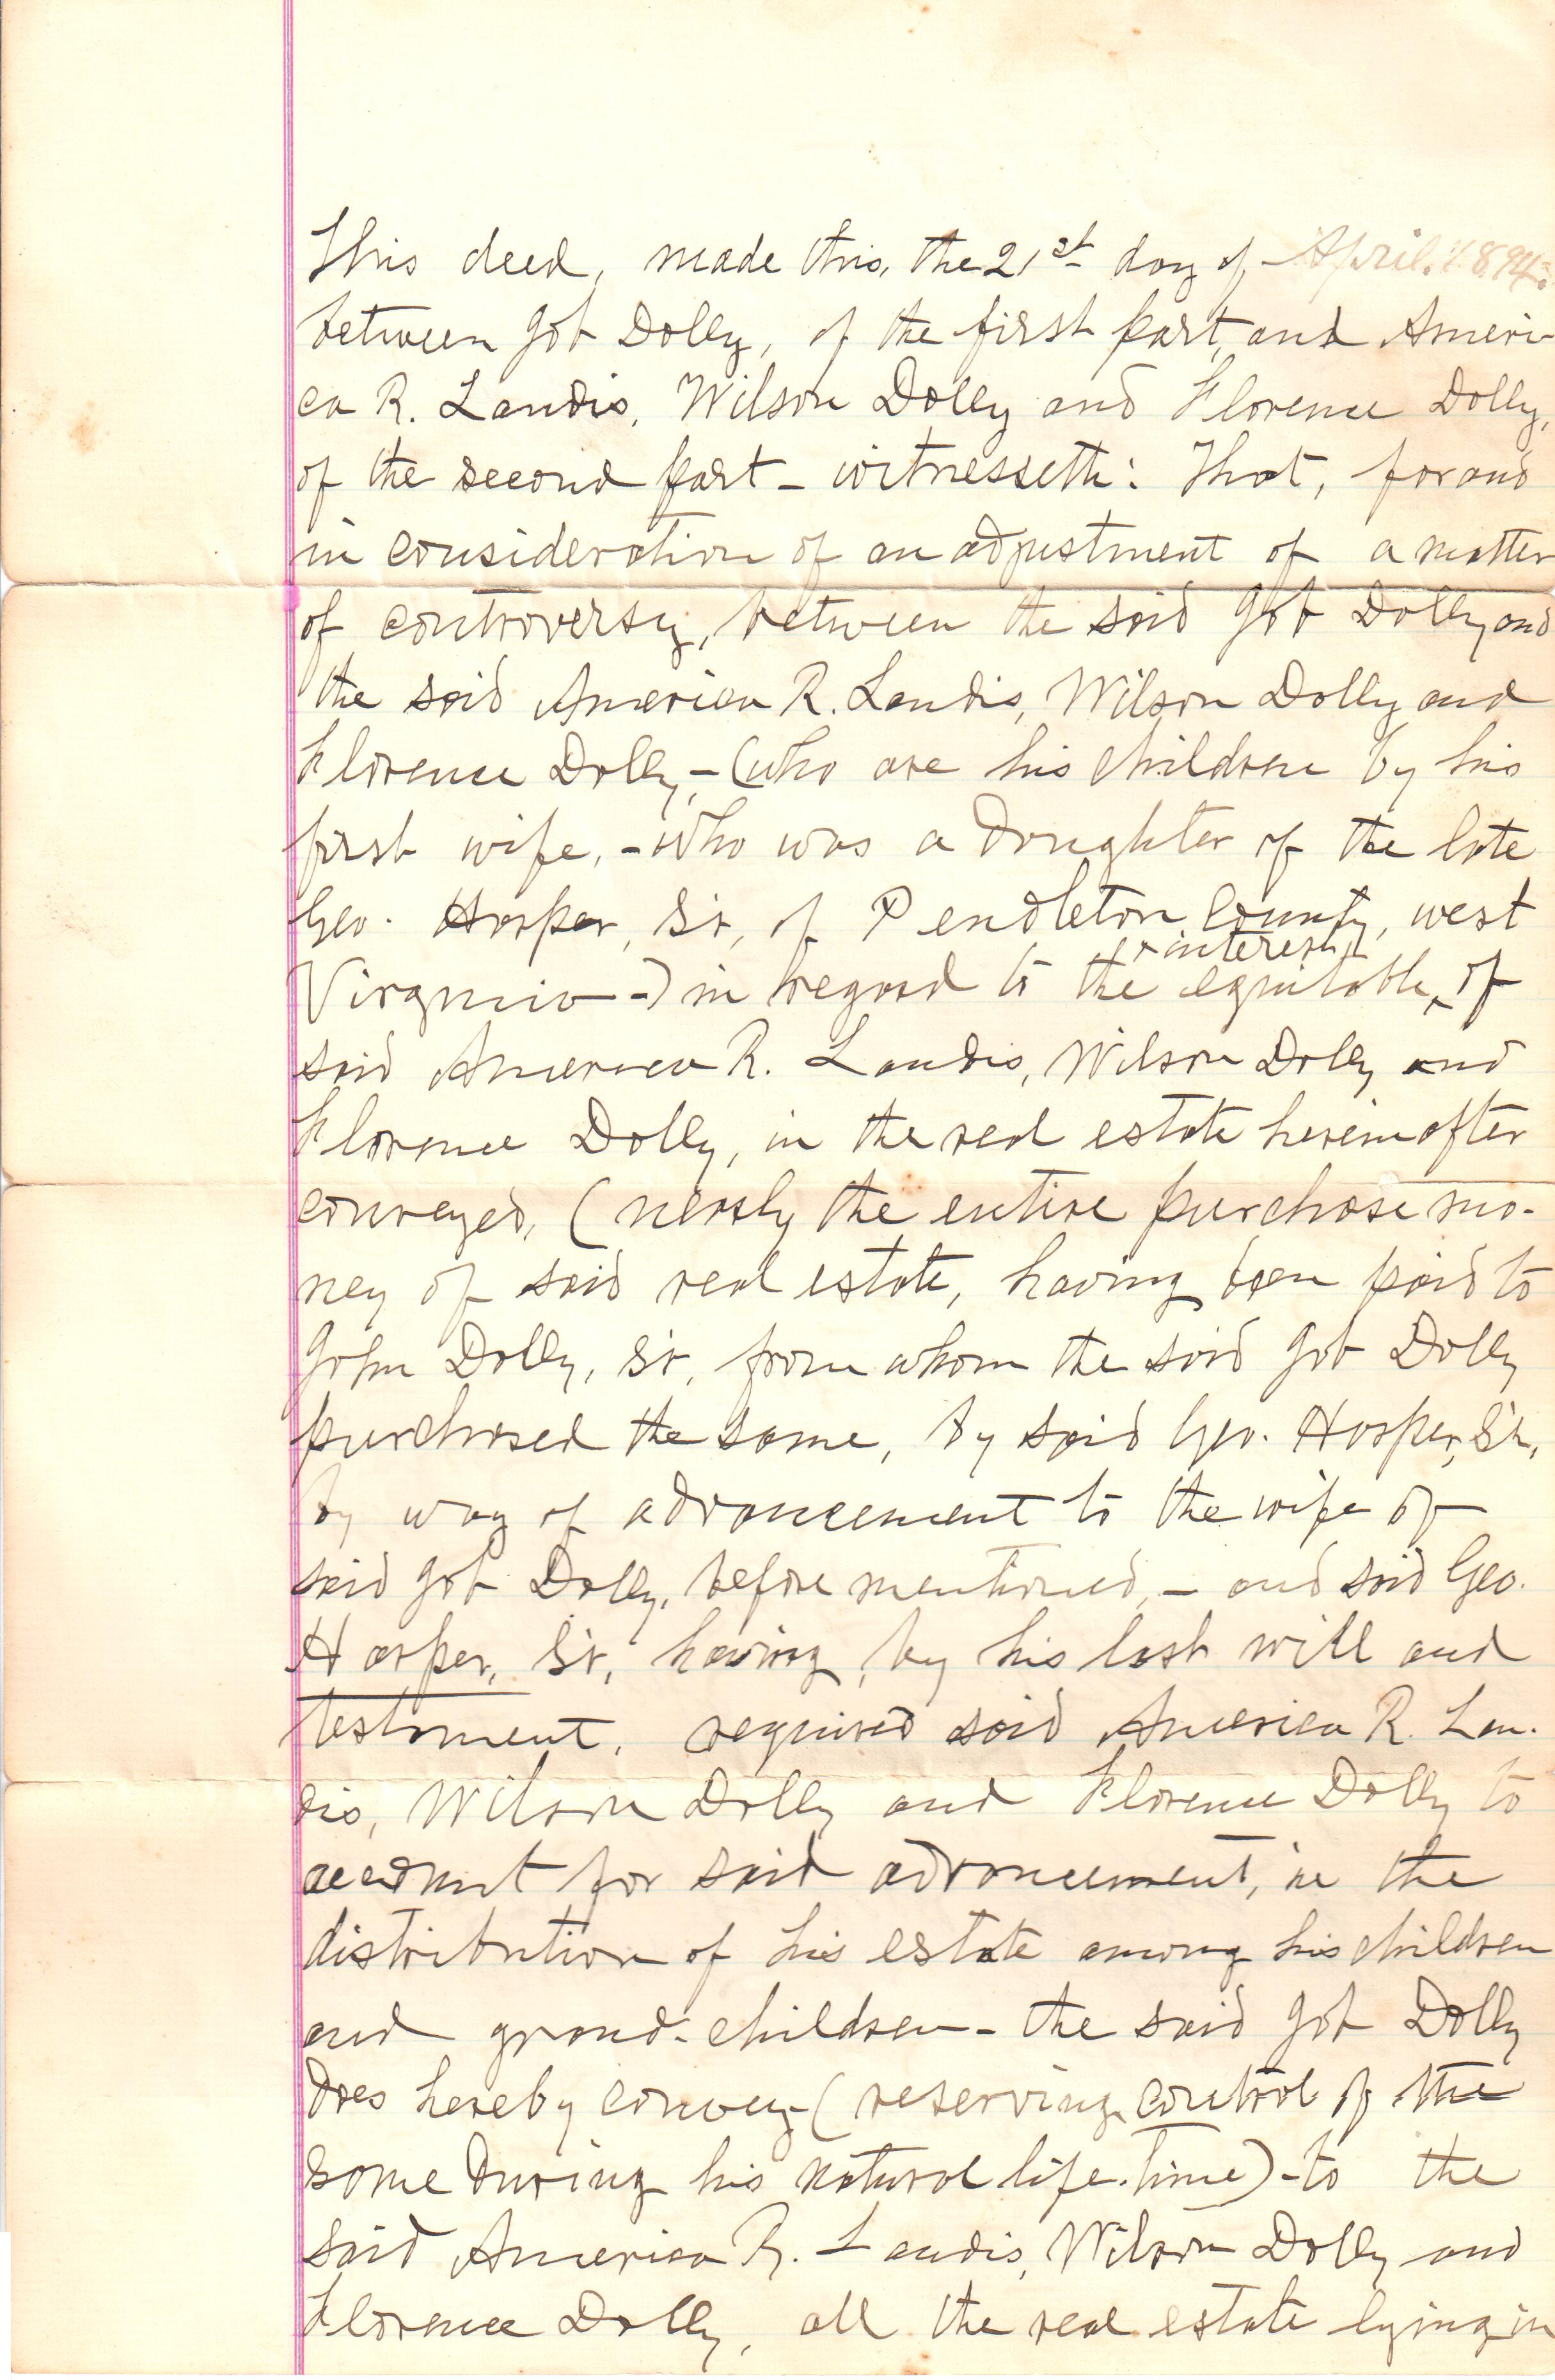 This deed, made this, the 21st day of April, 1894.
between Job Dolly, of the first part, and Ameri-
ca R. Landis, Wilson Dolly and Florence Dolly,
of the second part - witnesseth: That, for and
in consideration of an adjustment of a matter
of controversy, between the said Job Dolly and
the said America R. Landis, Wilson Dolly and
Florence Dolly, - (who are his children by his
first wife, - who was a daughter of the late
Geo. Harper, Sr, of Pendleton County, west
Virginia -) in regard to the equitable interest of
said America R. Landis, Wilson Dolly and
Florence Dolly, in the real estate hereinafter
conveyed, (nearly the entire purchase mo-
ney of said real estate, having been paid to
John Dolly, Sr, from whom the said Job Dolly
purchased the same, by said Geo. Harper, Sr,
by way of advancement to the wife of
said Job Dolly, before mentioned, - and said Geo.
Harper, Sr, having, by his last will and
testament, required said America R. Lan-
dis, Wilson Dolly and Florence Dolly to
account for said advancement, in the
distribution of his estate among his children
and grand-children - the said Job Dolly
does hereby convey - (reserving control of the
same during his natural life-time) - to the
said America R. Landis, Wilson Dolly and
Florence Dolly, all the real estate lying in